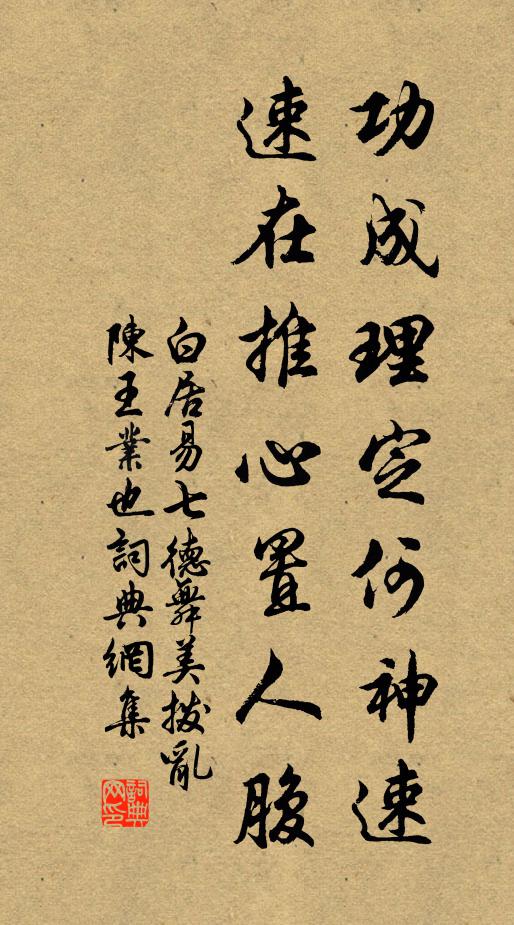 功成理定何神速
速在推心置人腹
白居易七德舞美拨亂
陳王業也詞典網集
詞典
网印